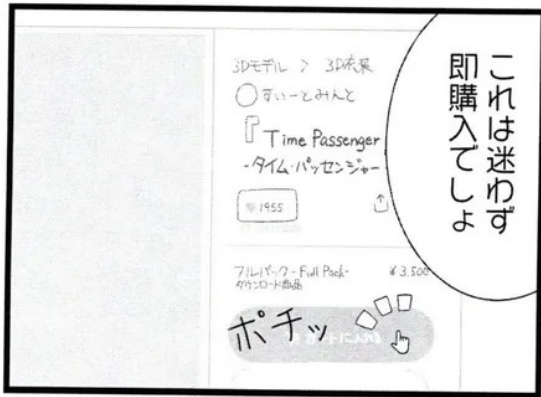 これは迷わず
即購入でしょ
3Dモデル > 3D衣装
すいーとみんと
『Time Passenger
-タイム・パッセンジャー-
♥1955
フルパック-Full Pack-
¥3,500
ダウンロード商品
カートに入れる
ポチッ